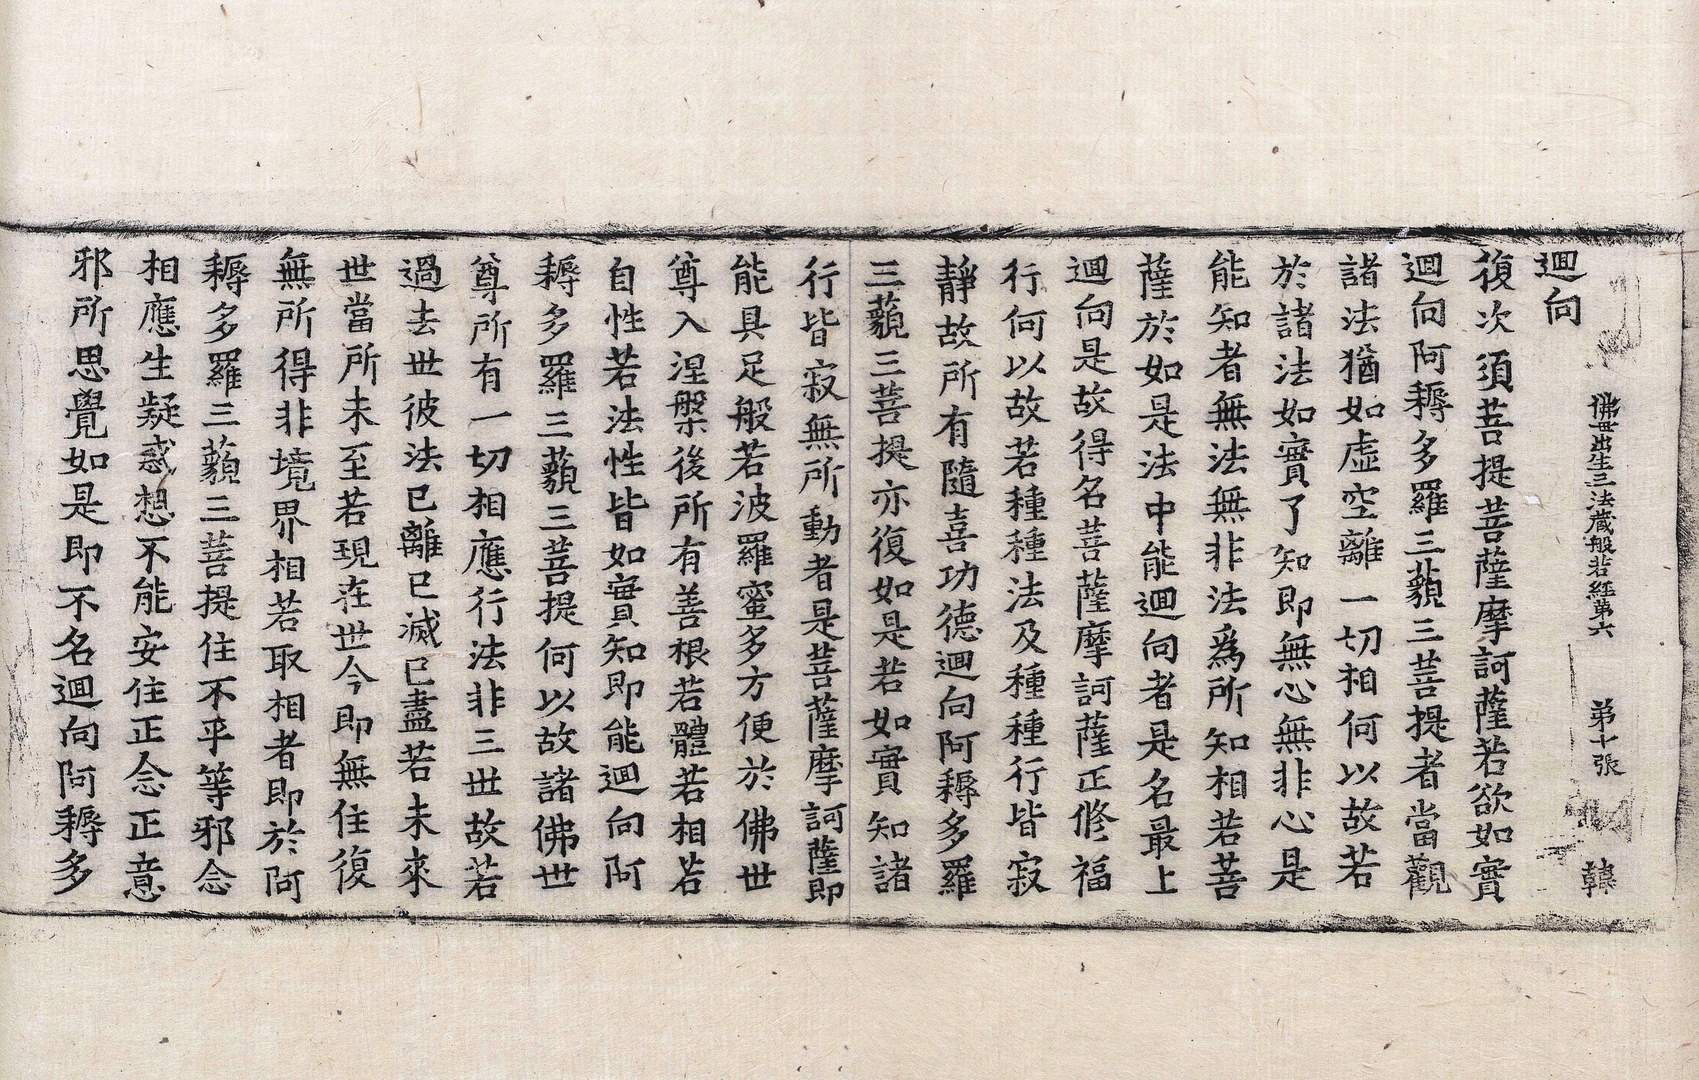 佛母出生三法藏般若經第六 第十張 韓
迴向
復次須菩提菩薩摩訶薩若欲如實
迴向阿耨多羅三藐三菩提者當觀
諸法猶如虛空離一切相何以故若
於諸法如實了知即無心無非心是
能知者無法無非法爲所知相若菩
薩於如是法中能迴向者是名最上
迴向是故得名菩薩摩訶薩正修福
行何以故若種種法及種種行皆寂
靜故所有隨喜功德迴向阿耨多羅
三藐三菩提亦復如是若如實知諸
行皆寂無所動者是菩薩摩訶薩即
能具足般若波羅蜜多方便於佛世
尊入涅槃後所有善根若體若相若
自性若法性皆如實知即能迴向阿
耨多羅三藐三菩提何以故諸佛世
尊所有一切相應行法非三世故若
過去世彼法已離已滅已盡若未來
世當所未至若現在世今即無住復
無所得非境界相若取相者即於阿
耨多羅三藐三菩提住不平等邪念
相應生疑惑想不能安住正念正意
邪所思覺如是即不名迴向阿耨多